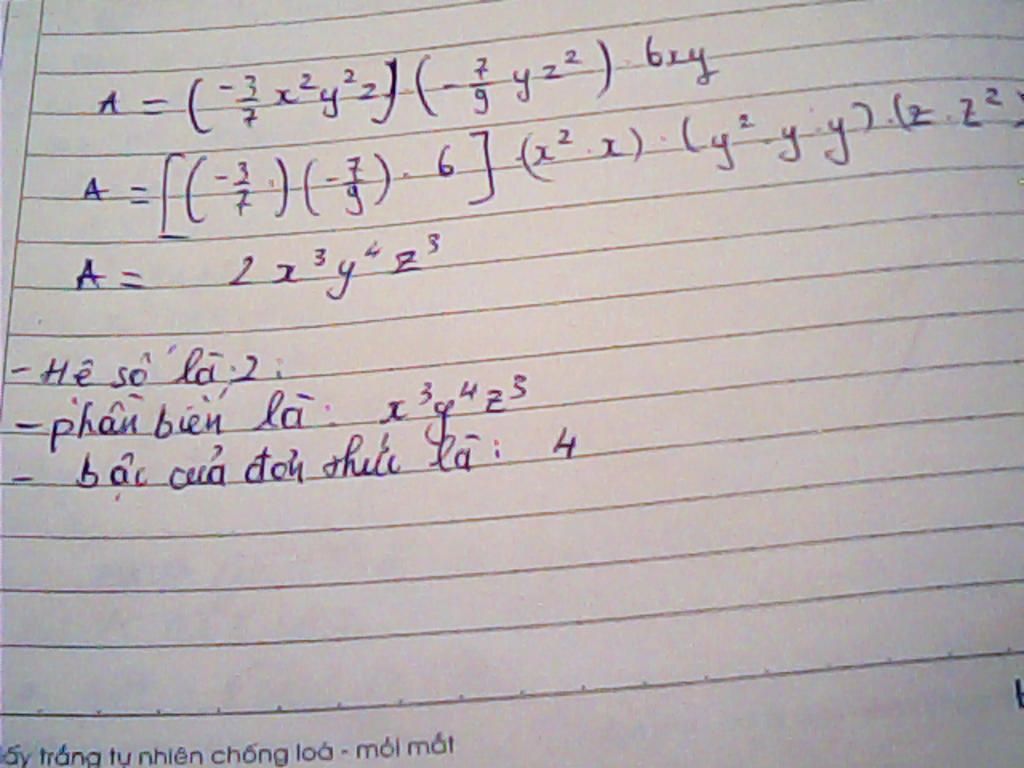 A = (-3/7 x²y²z)(-7/9 yz²) · 6xy
A = [(-3/7 ·)(-7/9) · 6] · (x² · x) · (y² · y · y) · (z · z²)
A = 2x³y⁴z³
- Hệ số là: 2:
- phần biến là: x³y⁴z³
- bậc của đơn thức là: 4
ấy trắng tự nhiên chống loá - mỏi mắt